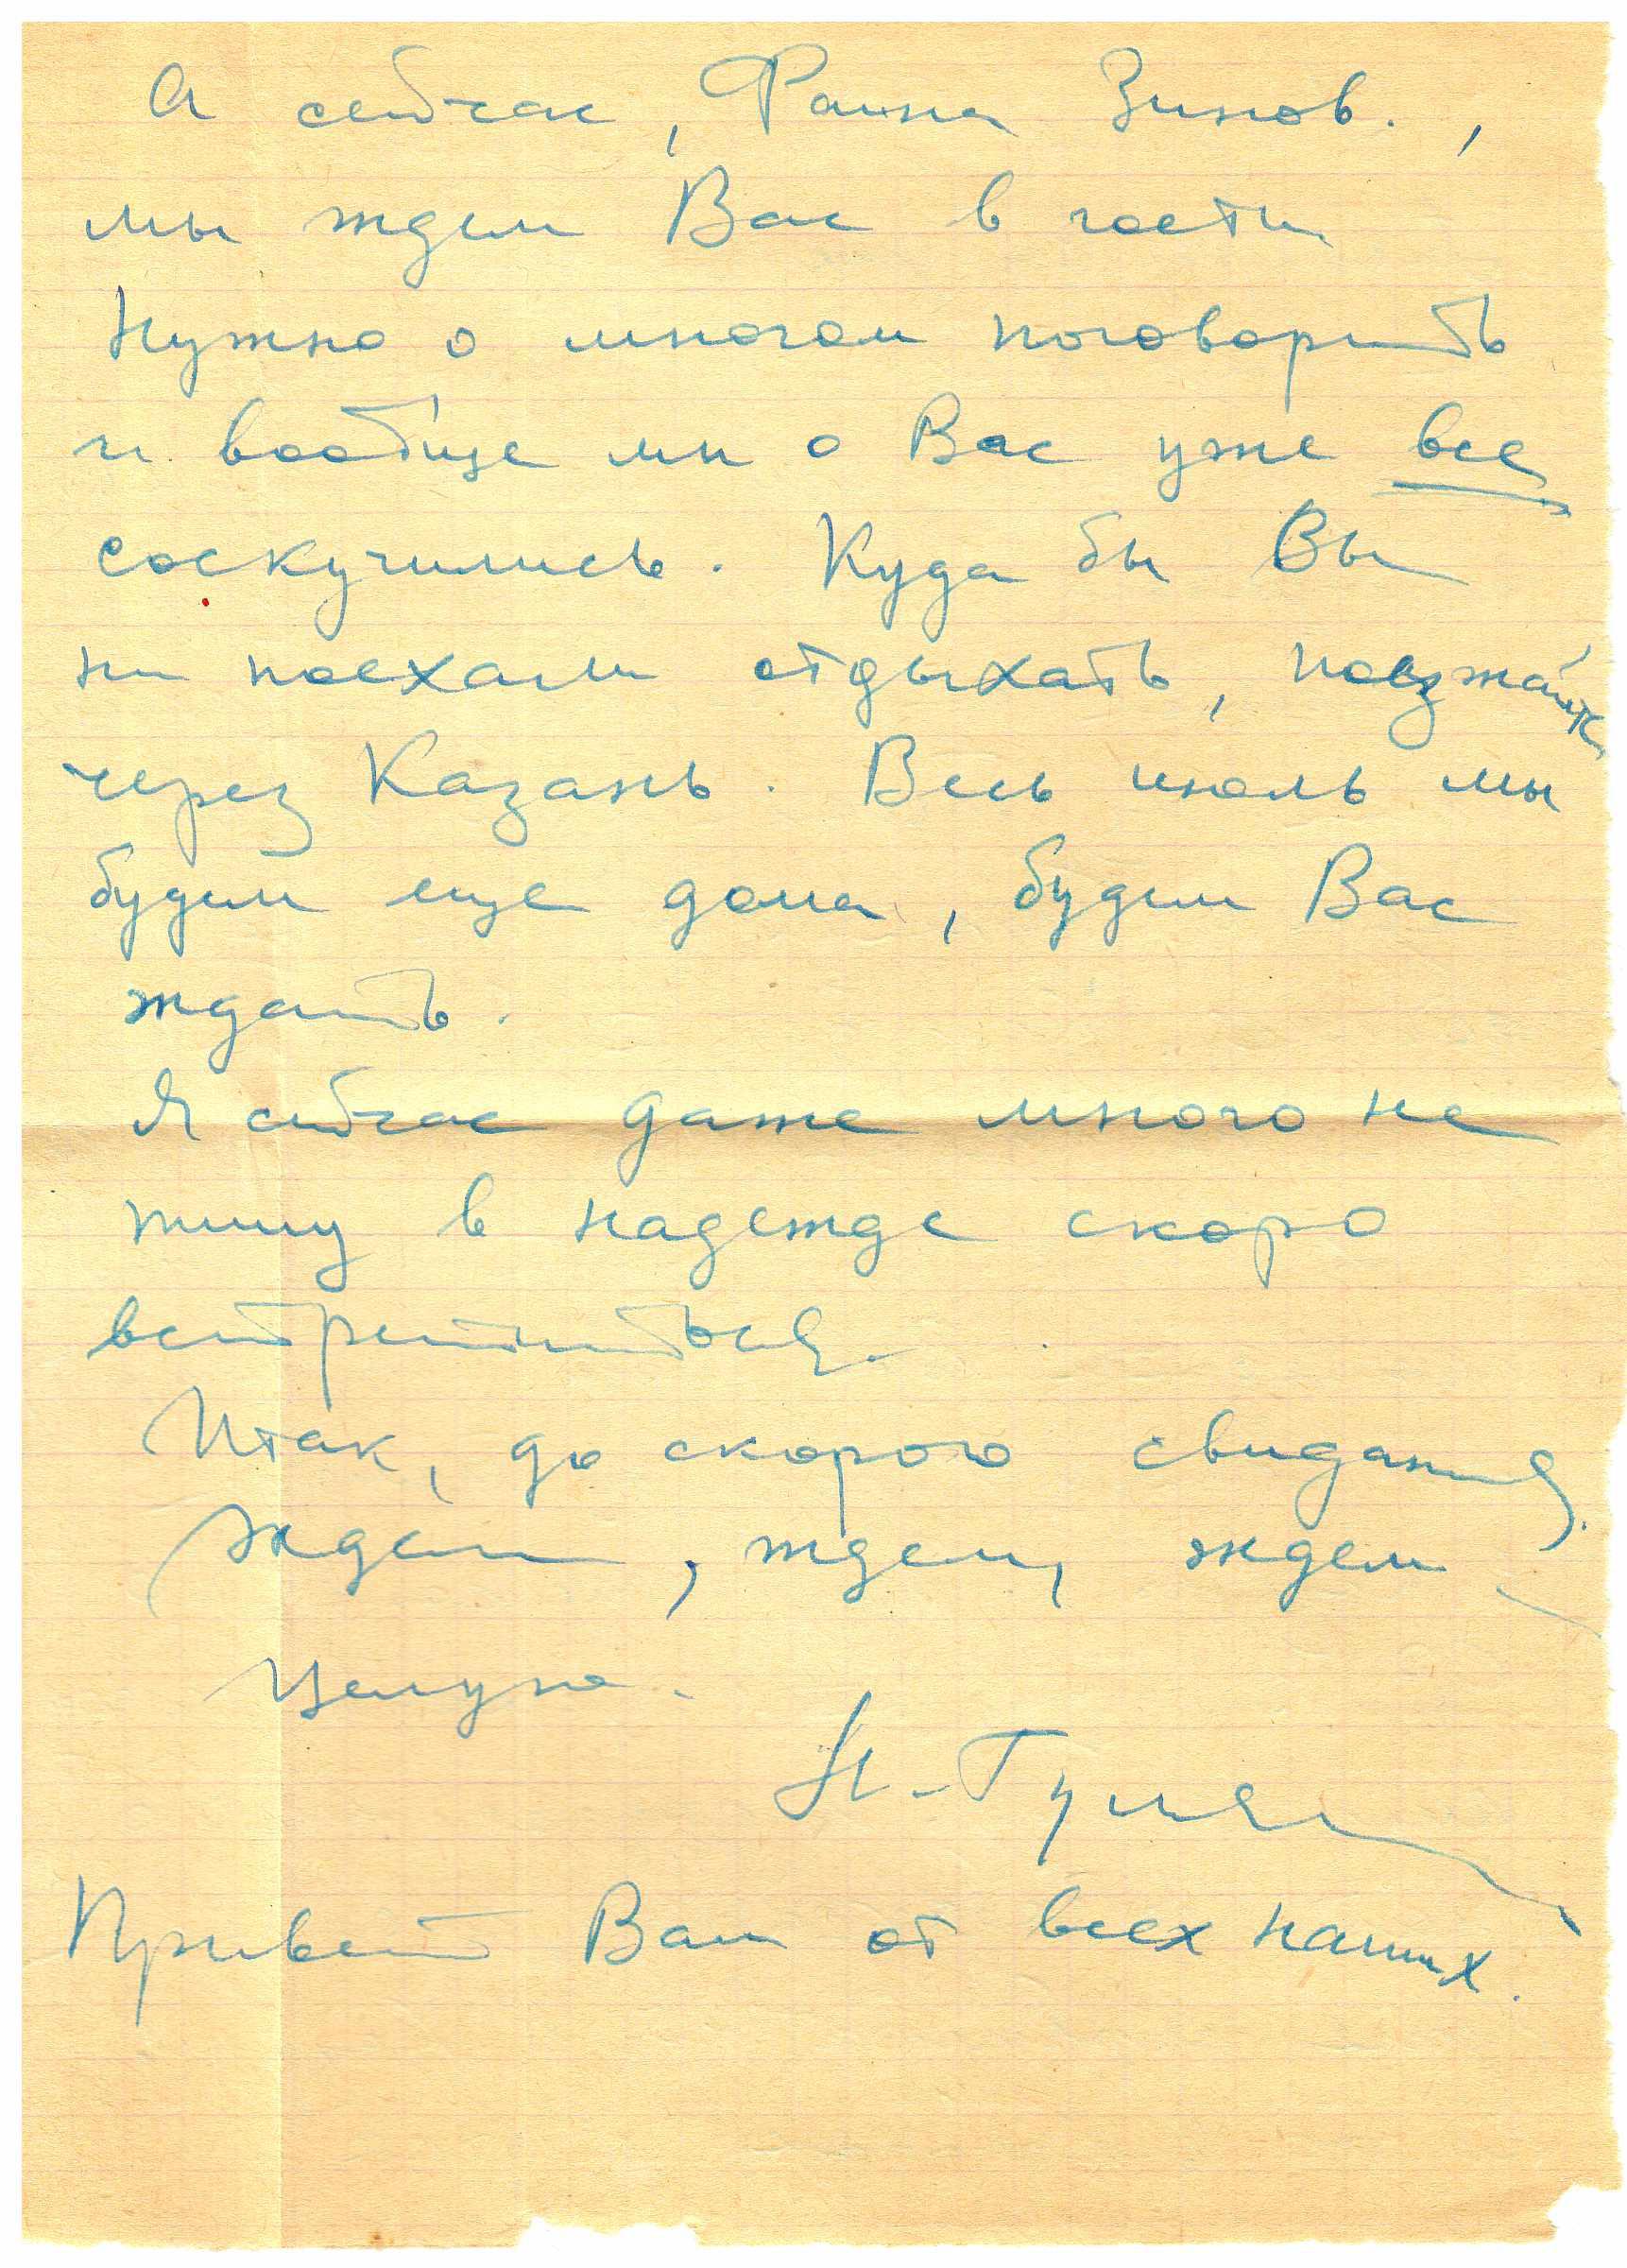 А сейчас, Фаина Зинов.,
мы ждем Вас в гости
Нужно о многом поговорить
и вообще мы о Вас уже все
соскучились. Куда бы Вы
ни поехали отдыхать, поезжайте
через Казань. Весь июль мы
будем еще дома, будем Вас
ждать.
Я сейчас даже много не
пишу в надежде скоро
встретиться.
Итак, до скорого свидания.
Ждем, ждем, ждем
Целую.
Н.
Привет Вам от всех наших.